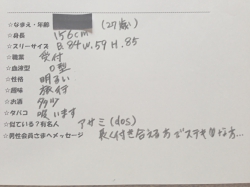 ☆なまえ・年齢 (27歳)
☆身長 156cm
☆スリーサイズ B.84 W.59 H.85
☆職業 受付
☆血液型 O型
☆性格 明るい
☆趣味 旅行
☆お酒 少々
☆タバコ 吸います
☆似ている?有名人 アサミ(dos)
☆男性会員さまへメッセージ
お付き合える方でステキな方…